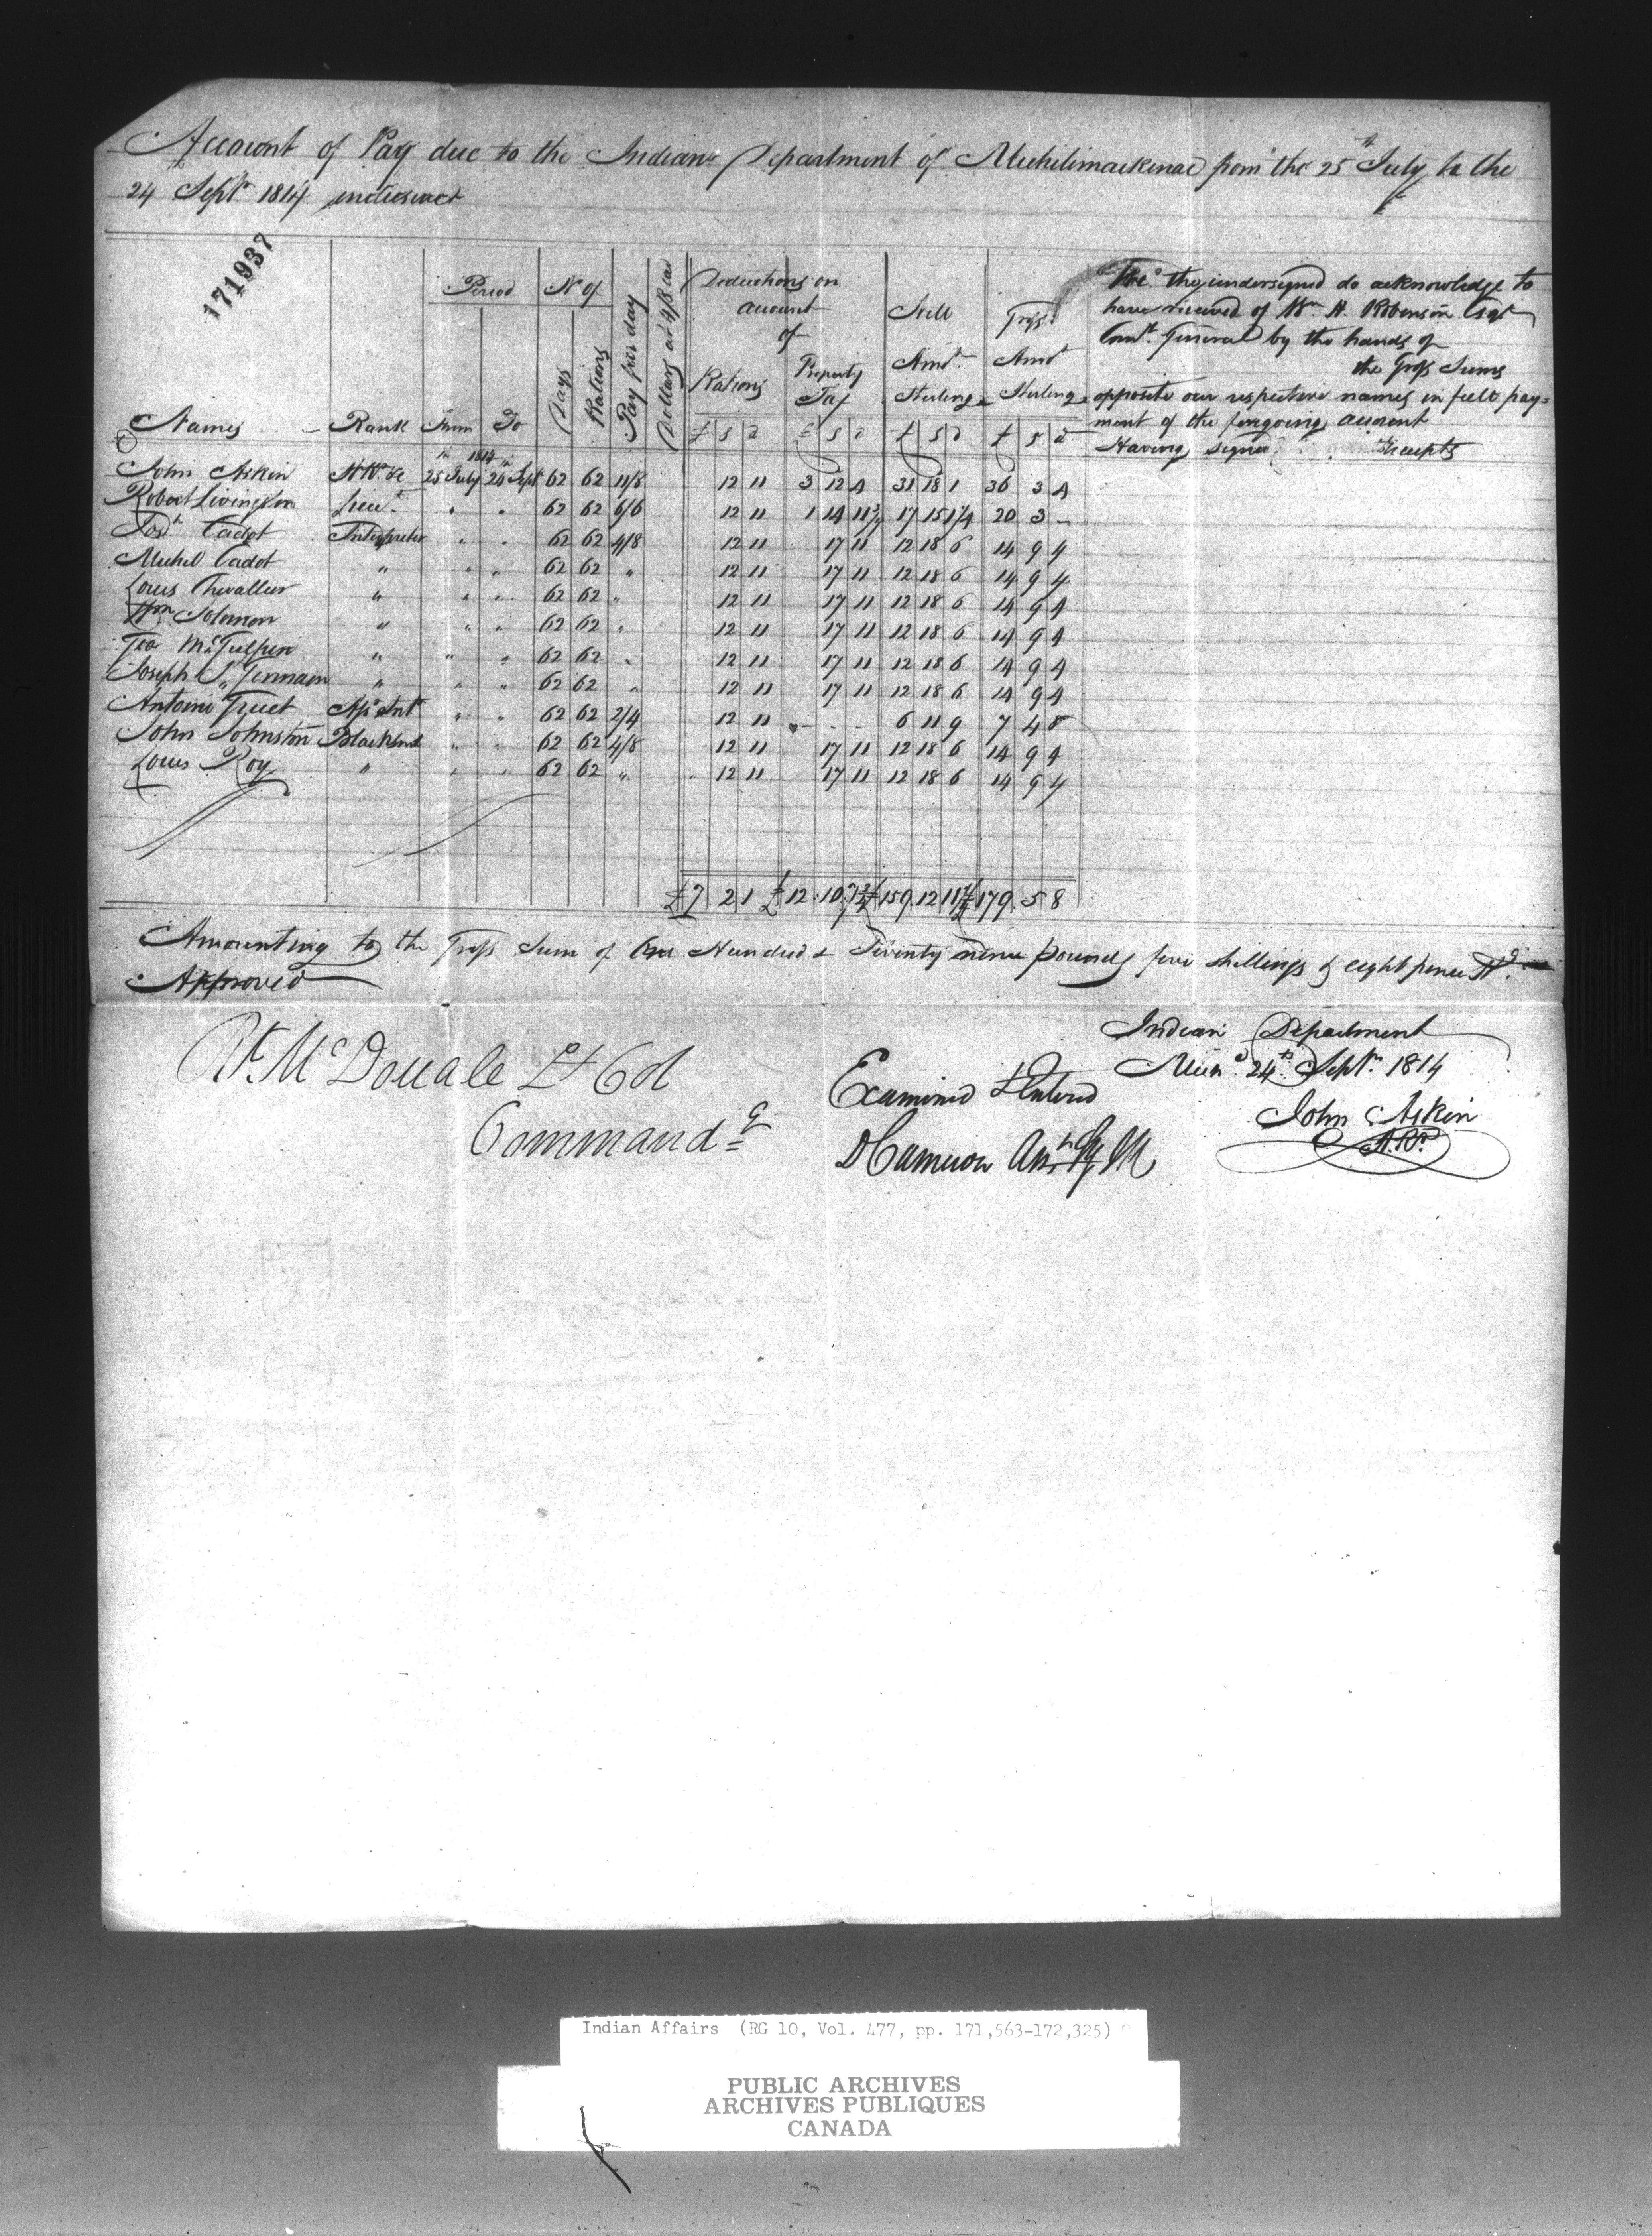 Account of Pay due to the Indian Department of Michilimackinac from the 25th July to the
24 Septr 1814 inclusive
171937
Names Rank Period From To No of Days Rations Pay per day Dollars at 4/8 ea Deductions on account of Rations Property Tax Still Amt Sterling Gross Amt Sterling
£ s d £ s d £ s d £ s d
We the undersigned do acknowledge to
have received of Wm H. Robinson Esqr
Comy General by the hands of
the Gross Sums
opposite our respective names in full pay=
ment of the foregoing account
Having signed Receipts
1814
John Askin 25 July 24 Sept 62 62 11/8 12 11 3 12 4 31 18 1 36 3 4
Robert Livingston Lieut " " 62 62 6/6 12 11 1 14 11¾ 17 15 1¼ 20 3 -
Josh Cadot Interpreter " " 62 62 4/8 12 11 17 11 12 18 6 14 9 4
Michel Cadot " " " 62 62 " 12 11 17 11 12 18 6 14 9 4
Louis Chevallier " " " 62 62 " 12 11 17 11 12 18 6 14 9 4
Wm Solomon " " " 62 62 " 12 11 17 11 12 18 6 14 9 4
Geo McGulpin " " " 62 62 " 12 11 17 11 12 18 6 14 9 4
Joseph St Germain " " " 62 62 " 12 11 17 11 12 18 6 14 9 4
Antoine " " 62 62 2/4 12 11 - - - 6 11 9 7 4 8
John Johnston Blacksmt " " 62 62 4/8 12 11 17 11 12 18 6 14 9 4
Louis Roy " " " 62 62 " 12 11 17 11 12 18 6 14 9 4
£7 2 1 £12 10 7¾ £159 12 11¼ £179 5 8
Amounting to the Gross Sum of One Hundred & Seventy nine pounds five shillings & eight pence
Approved
Rt McDouall Lt Col
Commandg
Examined & Entered
DCameron
Indian Department
24th Septr 1814
John Askin
Indian Affairs (RG 10, Vol. 477, pp. 171,563-172,325)
PUBLIC ARCHIVES
ARCHIVES PUBLIQUES
CANADA